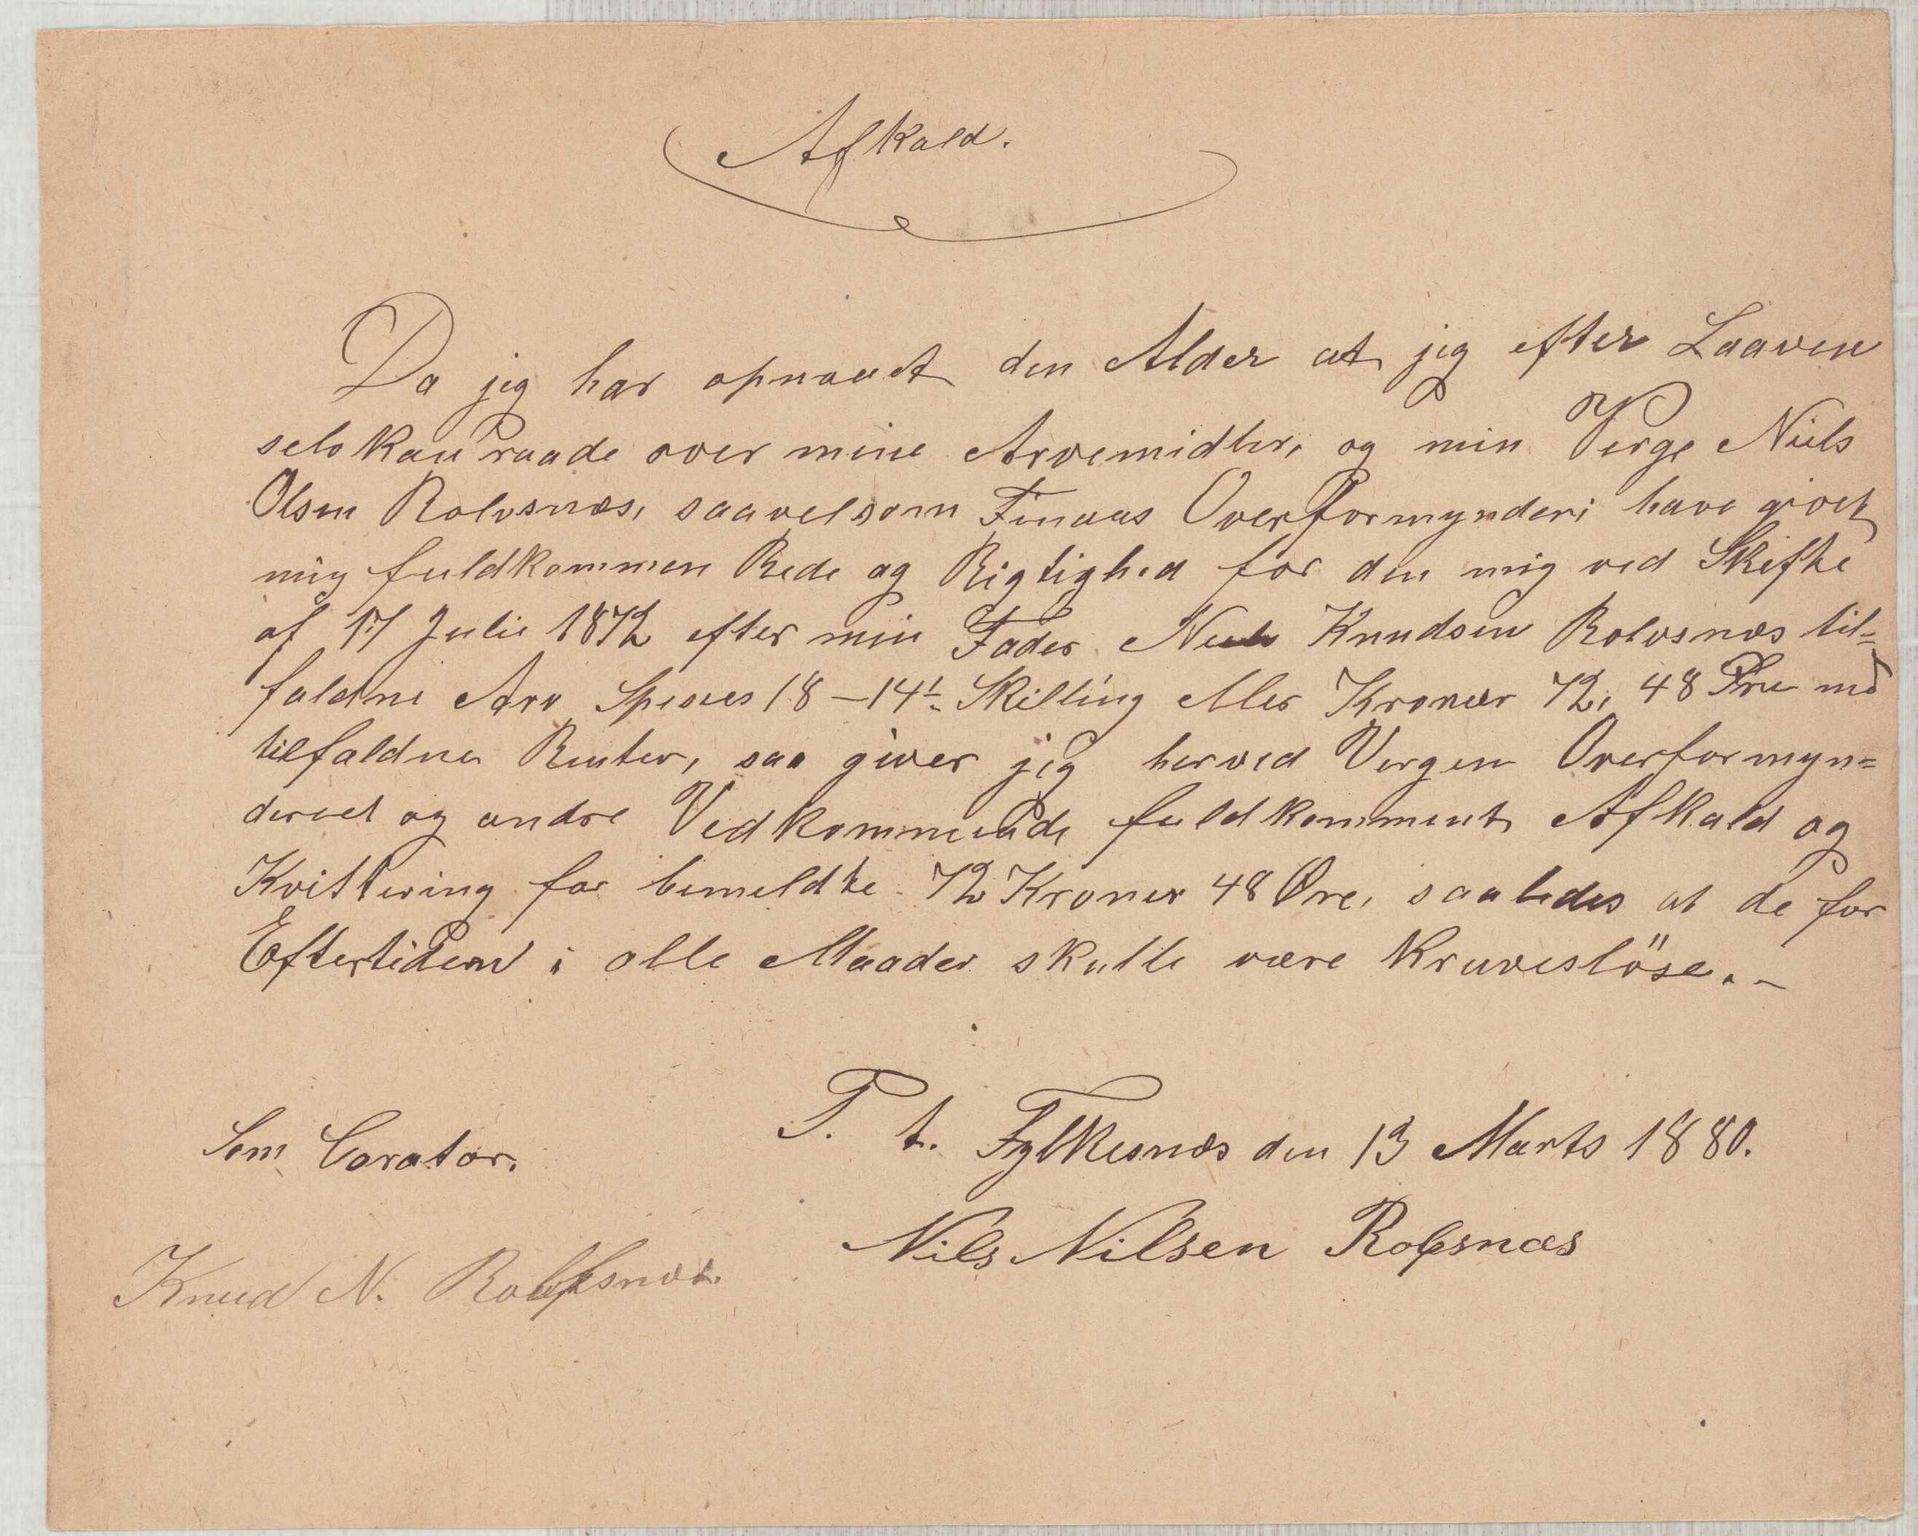 Afkald.
Da jeg har opnaaet den Alder at jeg efter Laaven
selv kan raade over mine Arvemidler, og min Verge Niels
Olsen Rolvsnæs, saavelsom Finaas Overformynderi have givet
mig fuldkommen Rede og Rigtighed for den mig ved Skifte
af 17 Julie 1872 efter min Fader Niels Knudsen Rolvsnæs til=
faldne Arv Spesies 18 - 14 Skilling eller Kroner 72, 48 Øre med
tilfaldne Renter, saa giver jeg herved Vergen Overformyn=
deriet og andre Vedkommende fuldkomment Afkald og
Kvittering for bemeldte 72 Kroner 48 Øre, saaledes at de for
Eftertiden i alle Maader skulle være Kravesløse. -
T. t. Fylkesnæs den 13 Marts 1880.
Som Corator.
Nils Nilsen Rolfsnæs
Knud N. Rolfsnæs.